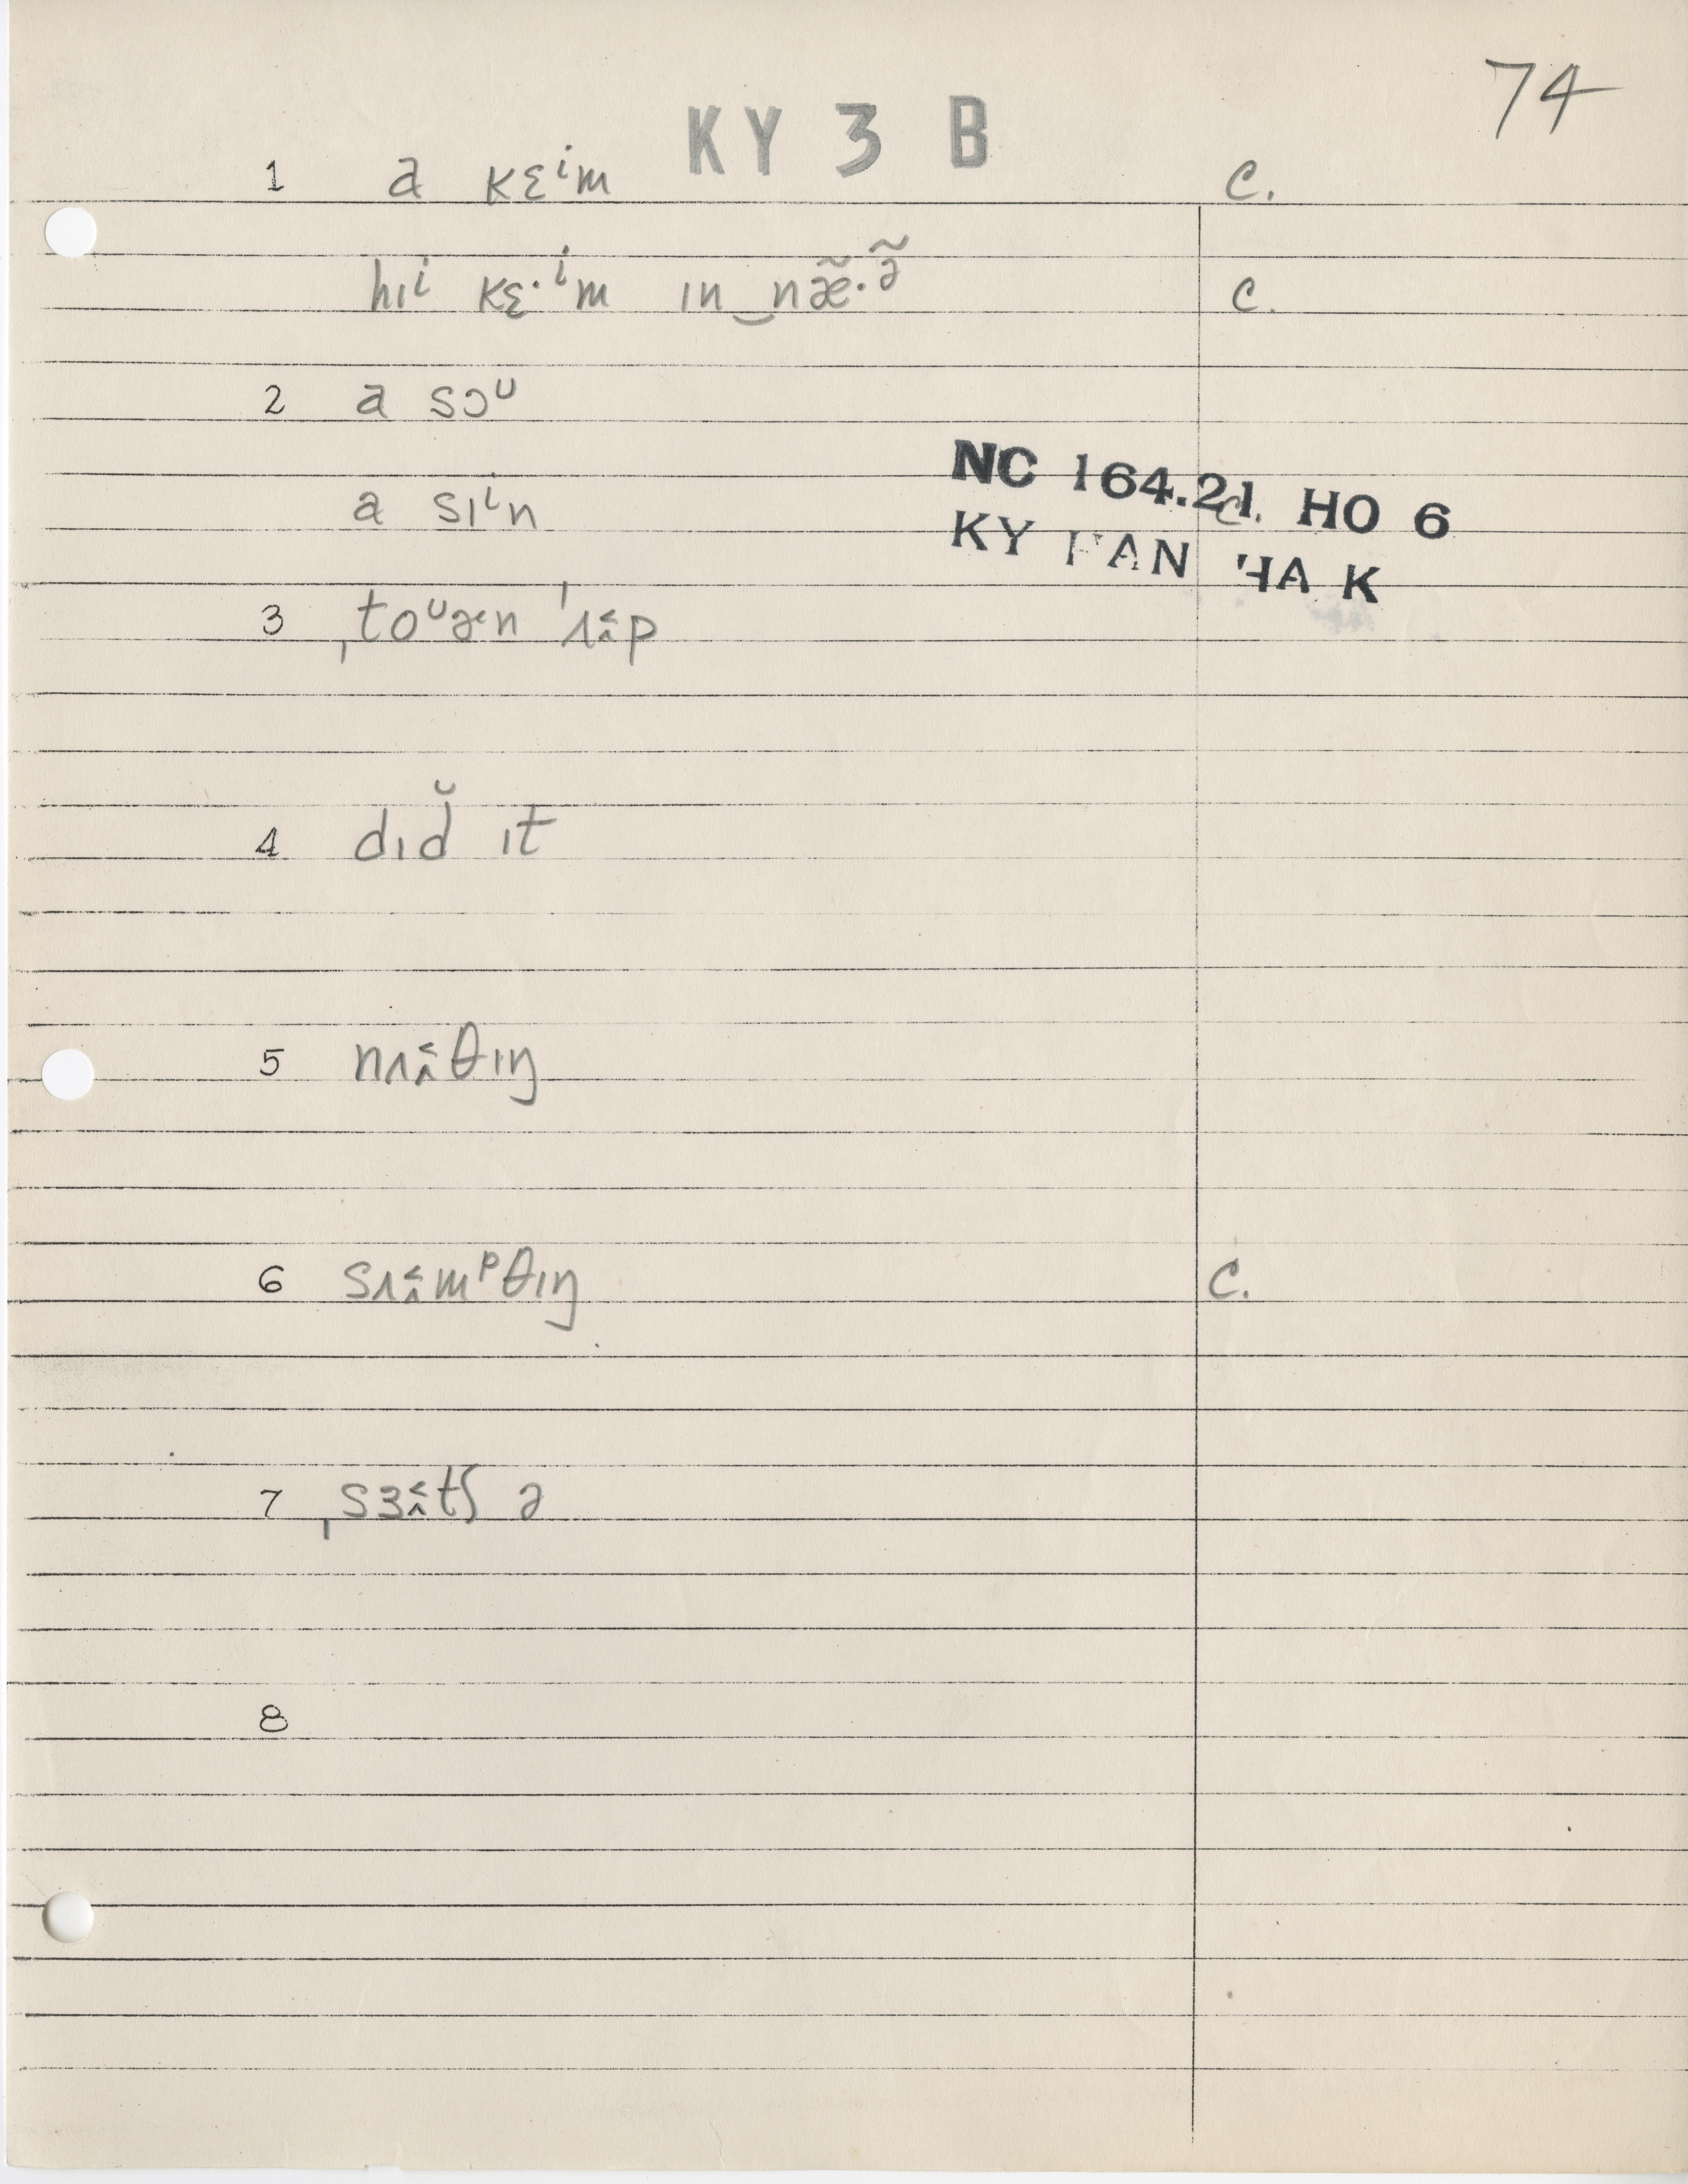 74
KY 3 B
1 a kɛⁱm c.
hɪⁱ kɛ·ⁱm ɪn‿næ̃·ə̃ c.
2 a sɔᵁ
NC 164.21 HO 6
a sɪⁱn c.
KY HA K
3 ˌtoᵁɚn ˈʌp
4 dɪd̆ ɪt
5 nʌθɪŋ
6 sʌmᵖθɪŋ c.
7 ˌsɜtʃ ə
8